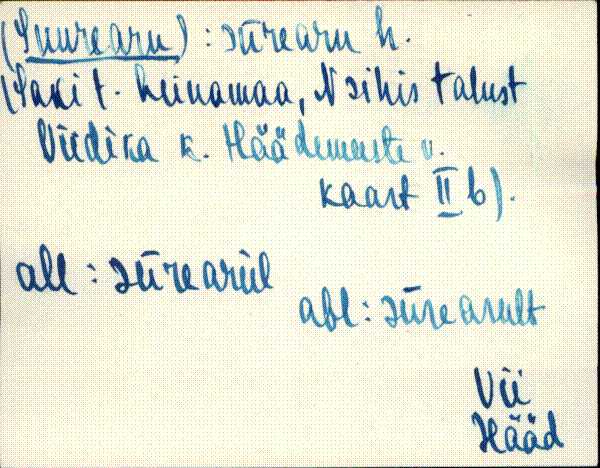 (Suurearu) : sūrearu h.
(Saki t. heinamaa, N sihis talust
Viidika k. Häädemeeste v.
kaart II b).
all : sūrearul
abl : sūrearult
Vii
Hääd